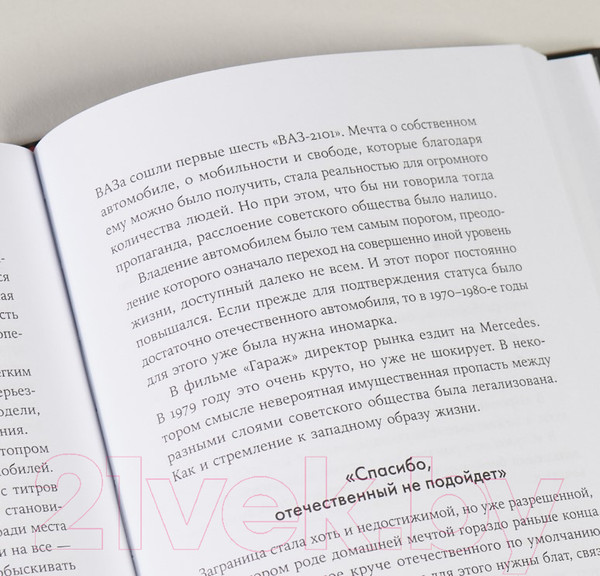 ВАЗа сошли первые шесть «ВАЗ-2101». Мечта о собственном
автомобиле, о мобильности и свободе, которые благодаря
ему можно было получить, стала реальностью для огромного
количества людей. Но при этом, что бы ни говорила тогда
пропаганда, расслоение советского общества было налицо.
Владение автомобилем было тем самым порогом, преодо-
ление которого означало переход на совершенно иной уровень
жизни, доступный далеко не всем. И этот порог постоянно
повышался. Если прежде для подтверждения статуса было
достаточно отечественного автомобиля, то в 1970–1980-е годы
для этого уже была нужна иномарка.
В фильме «Гараж» директор рынка ездит на Mercedes.
В 1979 году это очень круто, но уже не шокирует. В неко-
тором смысле невероятная имущественная пропасть между
разными слоями советского общества была легализована.
Как и стремление к западному образу жизни.
«Спасибо,
отечественный не подойдет»
Заграница стала хоть и недостижимой, но уже разрешенной,
тором роде домашней мечтой гораздо раньше конца
круче отечественного по умолчанию
для этого нужны блат, связ
ся
ая
сть
опе-
егким
ерьез-
одели,
ения.
топром
мобилей.
с титров
станови-
ради места
и на все —
обыскивать
21vek.by